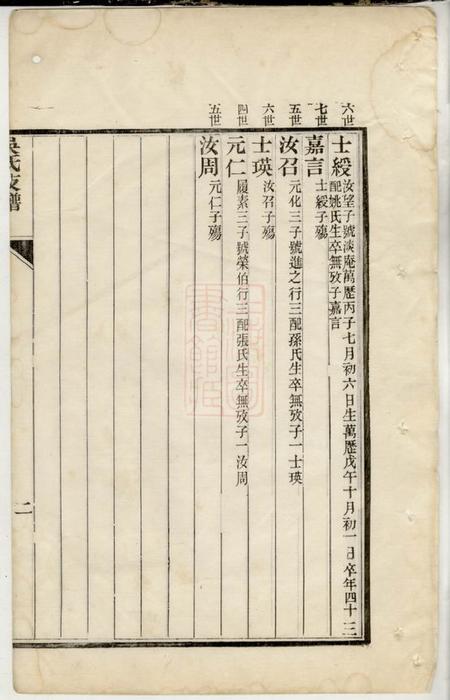 六世
士綬
汝望子號淡庵萬歷丙子七月初六日生萬歷戊午十月初一日卒年四十三
配姚氏生卒無攷子嘉言
七世
嘉言
士綬子殤
五世
汝召
元化三子號進之行三配孫氏生卒無攷子一士瑛
六世
士瑛
汝召子殤
四世
元仁
履素三子號榮伯行三配張氏生卒無攷子一汝周
五世
汝周
元仁子殤
吳氏支譜
二